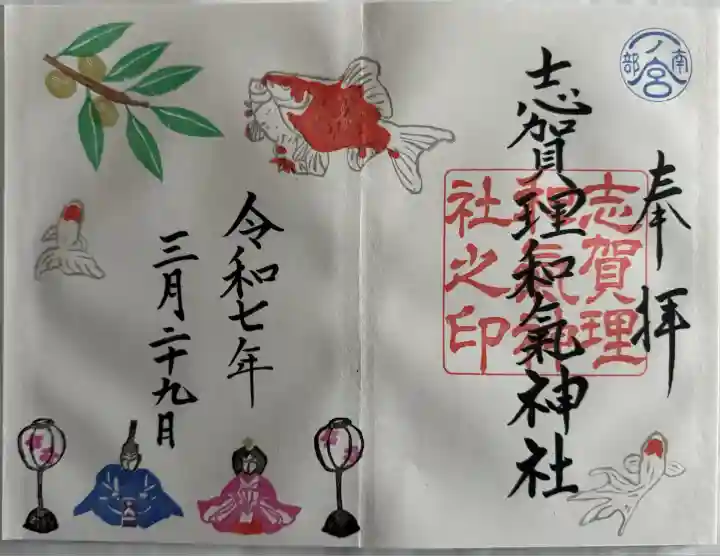 南部
一ノ宮
奉拝
志賀理和氣神社
志賀理
和氣神
社之印
令和七年
三月二十九日